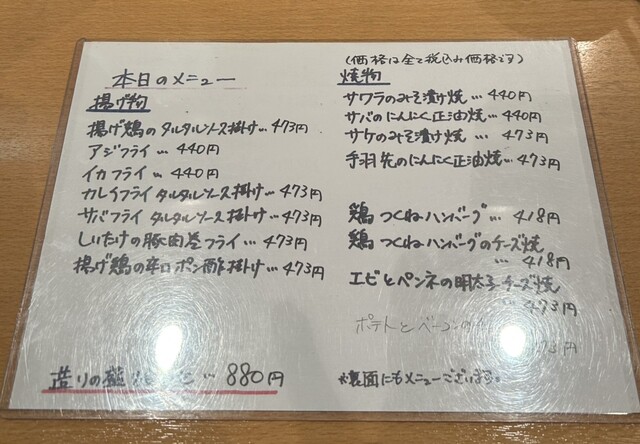 本日のメニュー
揚げ物
揚げ鶏のタルタルソース掛け…473円
アジフライ…440円
イカフライ…440円
カレイフライタルタルソース掛け…473円
サバフライタルタルソース掛け…473円
しいたけの豚肉巻フライ…473円
揚げ鶏の辛口ポン酢掛け…473円
造りの盛 …880円
(価格は全て税込み価格です)
焼物
サワラのみそ漬け焼…440円
サバのにんにく正油焼…440円
サケのみそ漬け焼…473円
手羽先のにんにく正油焼…473円
鶏つくねハンバーグ…418円
鶏つくねハンバーグのチーズ焼
…418円
エビとペンネの明太子チーズ焼
…473円
ポテトとベーコンの
473円
※裏面にもメニューございます。